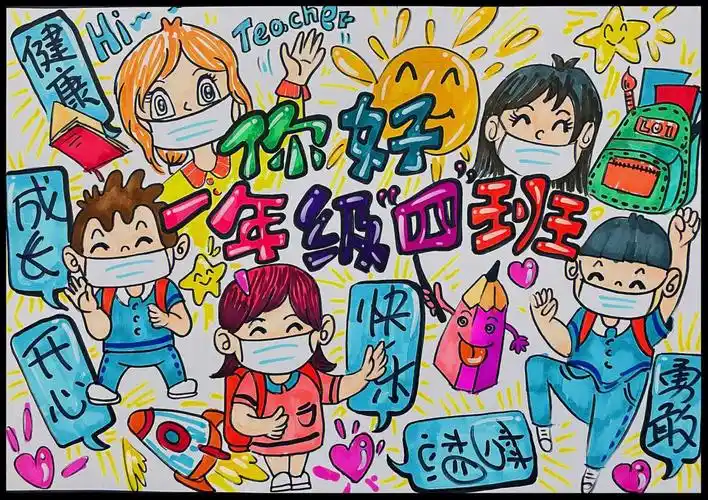 健康
Hi~
Teacher
你好
LOT
一年级“四”班
成长
开心
快乐
梦想
勇敢